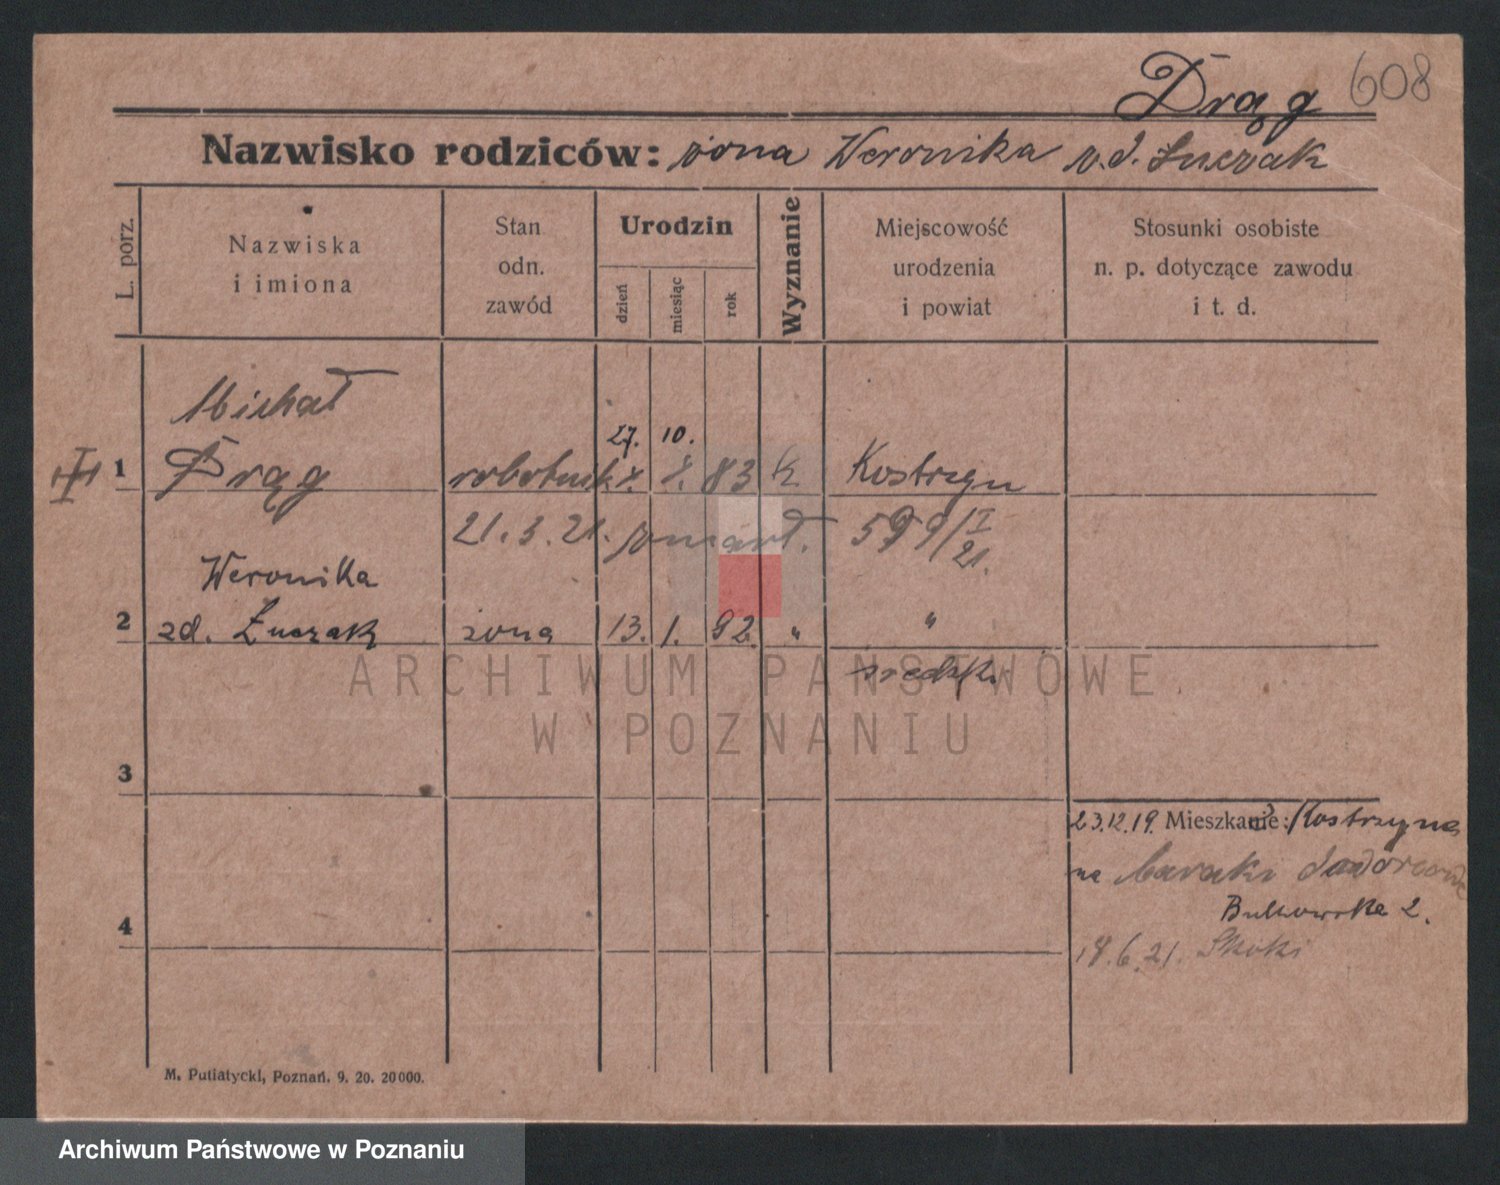 Drąg 608
Nazwisko rodziców: żona Weronika z.d. Łuczak
L. porz.
Nazwiska
i imiona
Stan
odn.
zawód
Urodzin
dzień
miesiąc
rok
Wyznanie
Miejscowość
urodzenia
i powiat
Stosunki osobiste
n. p. dotyczące zawodu
i t. d.
Michał
27. 10.
1 Drąg robotnik 83 k Kostrzyn
21.3.21. zmarł. 599/I
21.
Weronika
2 zd. Łuczak żona 13. 1. 92. " "
średzk.
3
23.12.19. Mieszkanie: Kostrzyna
na baraki dozorcowe
Bukowska 2.
4
18.6.21. Skoki
M. Putiatycki, Poznań. 9. 20. 20000.
ARCHIWUM PAŃSTWOWE
W POZNANIU
Archiwum Państwowe w Poznaniu